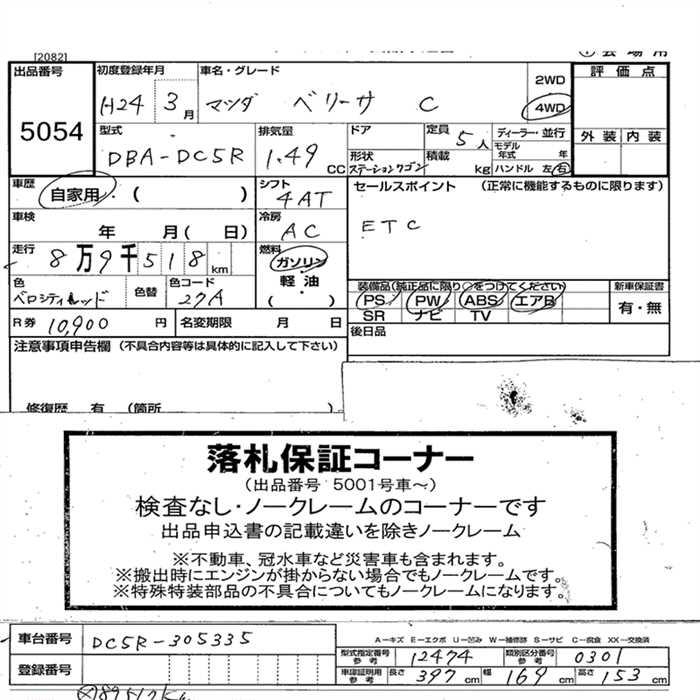 [2082]
出品番号
5054
初度登録年月
H24 3月
車名・グレード
マツダ ベリーサ C
2WD
4WD
評価点
外装 内装
型式
DBA-DC5R
排気量
1.49 CC
ドア
定員 5人
形状
ステーションワゴン
積載 kg
ディーラー・並行
モデル年式 年
ハンドル 左・右
車歴
自家用・( )
シフト
4AT
セールスポイント (正常に機能するものに限ります)
ETC
車検
年 月( 日)
冷房
AC
走行
8万9千518km
燃料
ガソリン
軽油
( )
色
ベロシティレッド
色替
色コード
27A
装備品(純正品に限り○をつけてください)
PS PW ABS エアB
SR ナビ TV
新車保証書
有・無
R券 10,900 円
名変期限 月 日
後日品
注意事項申告欄(不具合内容等は具体的に記入して下さい)
修復歴 有 (箇所 )
落札保証コーナー
(出品番号 5001号車～)
検査なし・ノークレームのコーナーです
出品申込書の記載違いを除きノークレーム
※不動車、冠水車など災害車も含まれます。
※搬出時にエンジンが掛からない場合でもノークレームです。
※特殊特装部品の不具合についてもノークレームになります。
車台番号 DC5R-305335
登録番号
A－キズ E－エクボ U－凹み W－補修跡 S－サビ C－腐食 XX－交換済
型式指定番号 参考 12474 類別区分番号 参考 0301
車庫証明用 参考 長さ 397 cm 幅 169 cm 高さ 153 cm